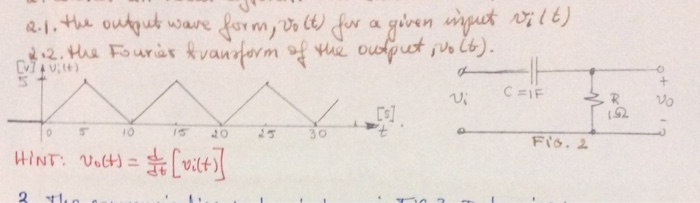 2.1. the output wave form, vo(t) for a given input vi(t)
2.2. the Fourier transform of the output, vo(t).
[v] vi(t)
5
0 5 10 15 20 25 30
[s]
t
vi
C=1F
R
1Ω
+
vo
-
FIG. 2
HINT: vo(t) = d/dt [vi(t)]